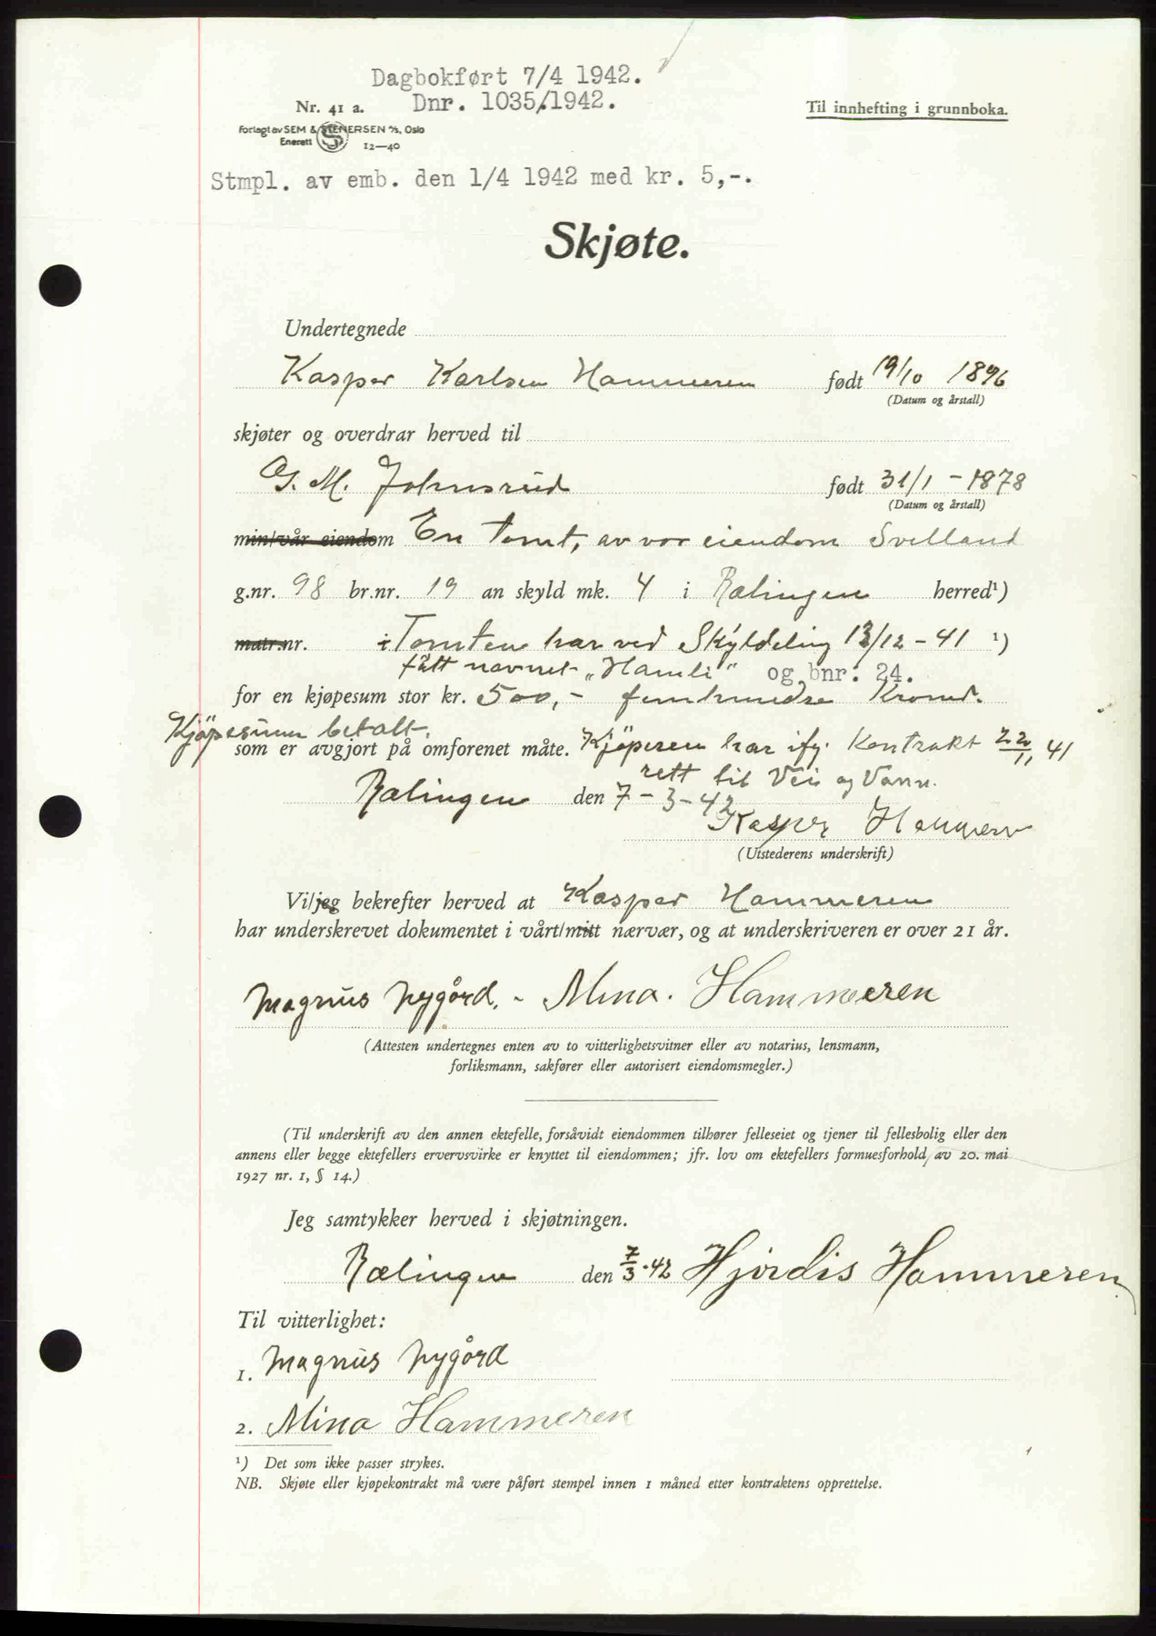 Dagbokført 7/4 1942.
Nr. 41 a. Dnr. 1035/1942.
Til innhefting i grunnboka.
Forlagt av SEM & STENERSEN A/S, Oslo
Enerett 12—40
Stmpl. av emb. den 1/4 1942 med kr. 5,-.
Skjøte.
Undertegnede
Kasper Karlsen Hammeren født 19/10 1896
(Datum og årstall)
skjøter og overdrar herved til
G. M. Johnsrud født 31/1 - 1878
(Datum og årstall)
min/vår eiendom En tomt, av vor eiendom Svelland
g.nr. 98 br.nr. 19 an skyld mk. 4 i Rælingen herred¹)
matr.nr. i Tomten har ved Skyldeling 13/12 - 41 ¹)
fått navnet „Hamli" og bnr. 24.
for en kjøpesum stor kr. 500,- femhundre Kroner.
Kjöpesum betalt.
som er avgjort på omforenet måte. Kjöperen har ifg. Kontrakt 22/11 41
rett til Vei og Vann.
Rælingen den 7 - 3 - 42
Kasper Hammeren
(Utstederens underskrift)
Vi/jeg bekrefter herved at Kasper Hammeren
har underskrevet dokumentet i vårt/mitt nærvær, og at underskriveren er over 21 år.
Magnus Nygård. - Mina. Hammeren
(Attesten undertegnes enten av to vitterlighetsvitner eller av notarius, lensmann,
forliksmann, sakfører eller autorisert eiendomsmegler.)
(Til underskrift av den annen ektefelle, forsåvidt eiendommen tilhører felleseiet og tjener til fellesbolig eller den
annens eller begge ektefellers ervervsvirke er knyttet til eiendommen; jfr. lov om ektefellers formuesforhold av 20. mai
1927 nr. 1, § 14.)
Jeg samtykker herved i skjøtningen.
Rælingen den 7/3-42 Hjördis Hammeren
Til vitterlighet:
1. Magnus Nygård
2. Mina Hammeren
¹) Det som ikke passer strykes.
NB. Skjøte eller kjøpekontrakt må være påført stempel innen 1 måned etter kontraktens opprettelse.